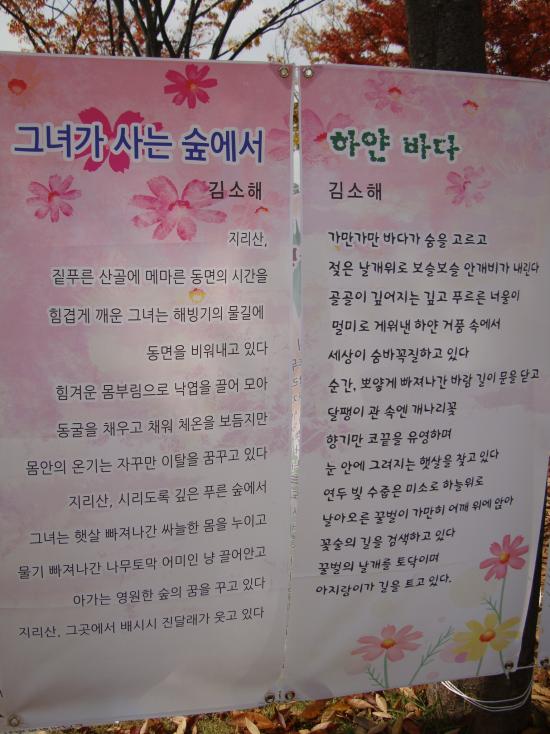 그녀가 사는 숲에서
김소해
지리산,
짙푸른 산골에 메마른 동면의 시간을
힘겹게 깨운 그녀는 해빙기의 물길에
동면을 비워내고 있다
힘겨운 몸부림으로 낙엽을 끌어 모아
동굴을 채우고 채워 체온을 보듬지만
몸안의 온기는 자꾸만 이탈을 꿈꾸고 있다
지리산, 시리도록 깊은 푸른 숲에서
그녀는 햇살 빠져나간 싸늘한 몸을 누이고
물기 빠져나간 나무토막 어미인 냥 끌어안고
아가는 영원한 숲의 꿈을 꾸고 있다
지리산, 그곳에서 배시시 진달래가 웃고 있다
하얀 바다
김소해
가만가만 바다가 숨을 고르고
젖은 날개위로 보슬보슬 안개비가 내린다
골골이 깊어지는 깊고 푸른 너울이
멀미로 게워낸 하얀 거품 속에서
세상이 숨바꼭질하고 있다
순간, 뽀얗게 빠져나간 바람 길이 문을 닫고
달팽이 관 속엔 개나리꽃
향기만 코끝을 유영하며
눈 안에 그려지는 햇살을 찾고 있다
연두 빛 수줍은 미소로 하늘위로
날아오른 꿀벌이 가만히 어깨 위에 앉아
꽃술의 길을 검색하고 있다
꿀벌의 날개를 토닥이며
아지랑이가 길을 트고 있다.